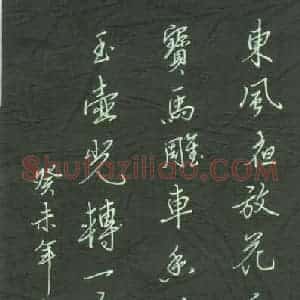 東風夜放花
寶馬雕車香
玉壺光轉一
癸未年
Shufaziliao.com